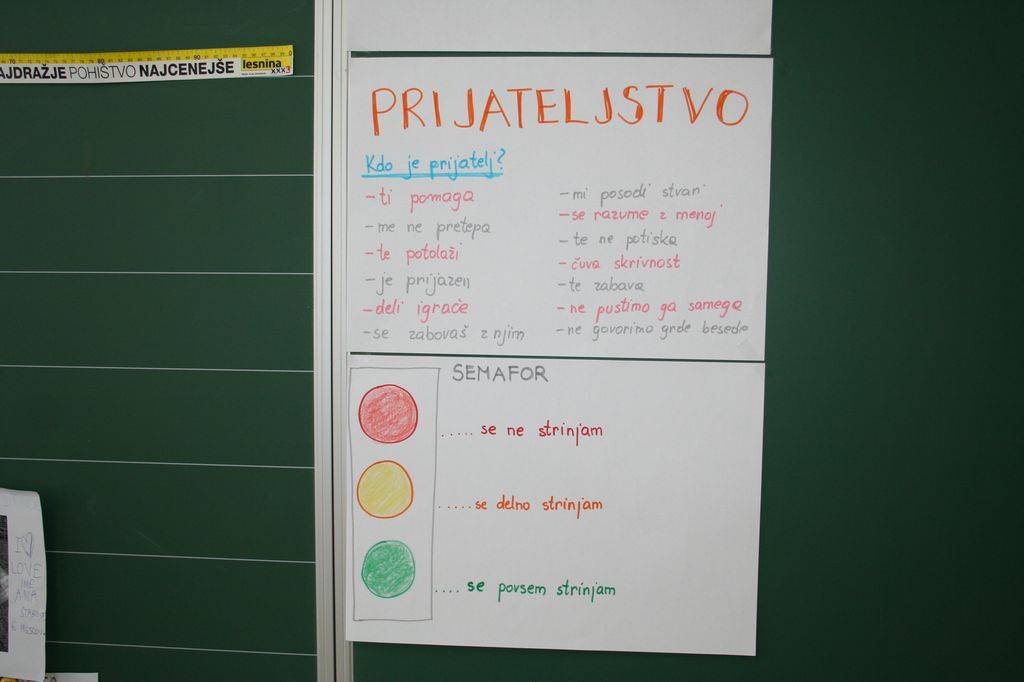 AJDRAŽJE POHIŠTVO NAJCENEJŠE lesnina XXXL
PRIJATELJSTVO
Kdo je prijatelj?
- ti pomaga
- me ne pretepa
- te potolaži
- je prijazen
- deli igrače
- se zabovaš z njim
- mi posodi stvari
- se razume z menoj
- te ne potiska
- čuva skrivnost
- te zabava
- ne pustimo ga samega
- ne govorimo grde besede
SEMAFOR
..... se ne strinjam
..... se delno strinjam
.... se povsem strinjam
I
LOVE
IME
ANA